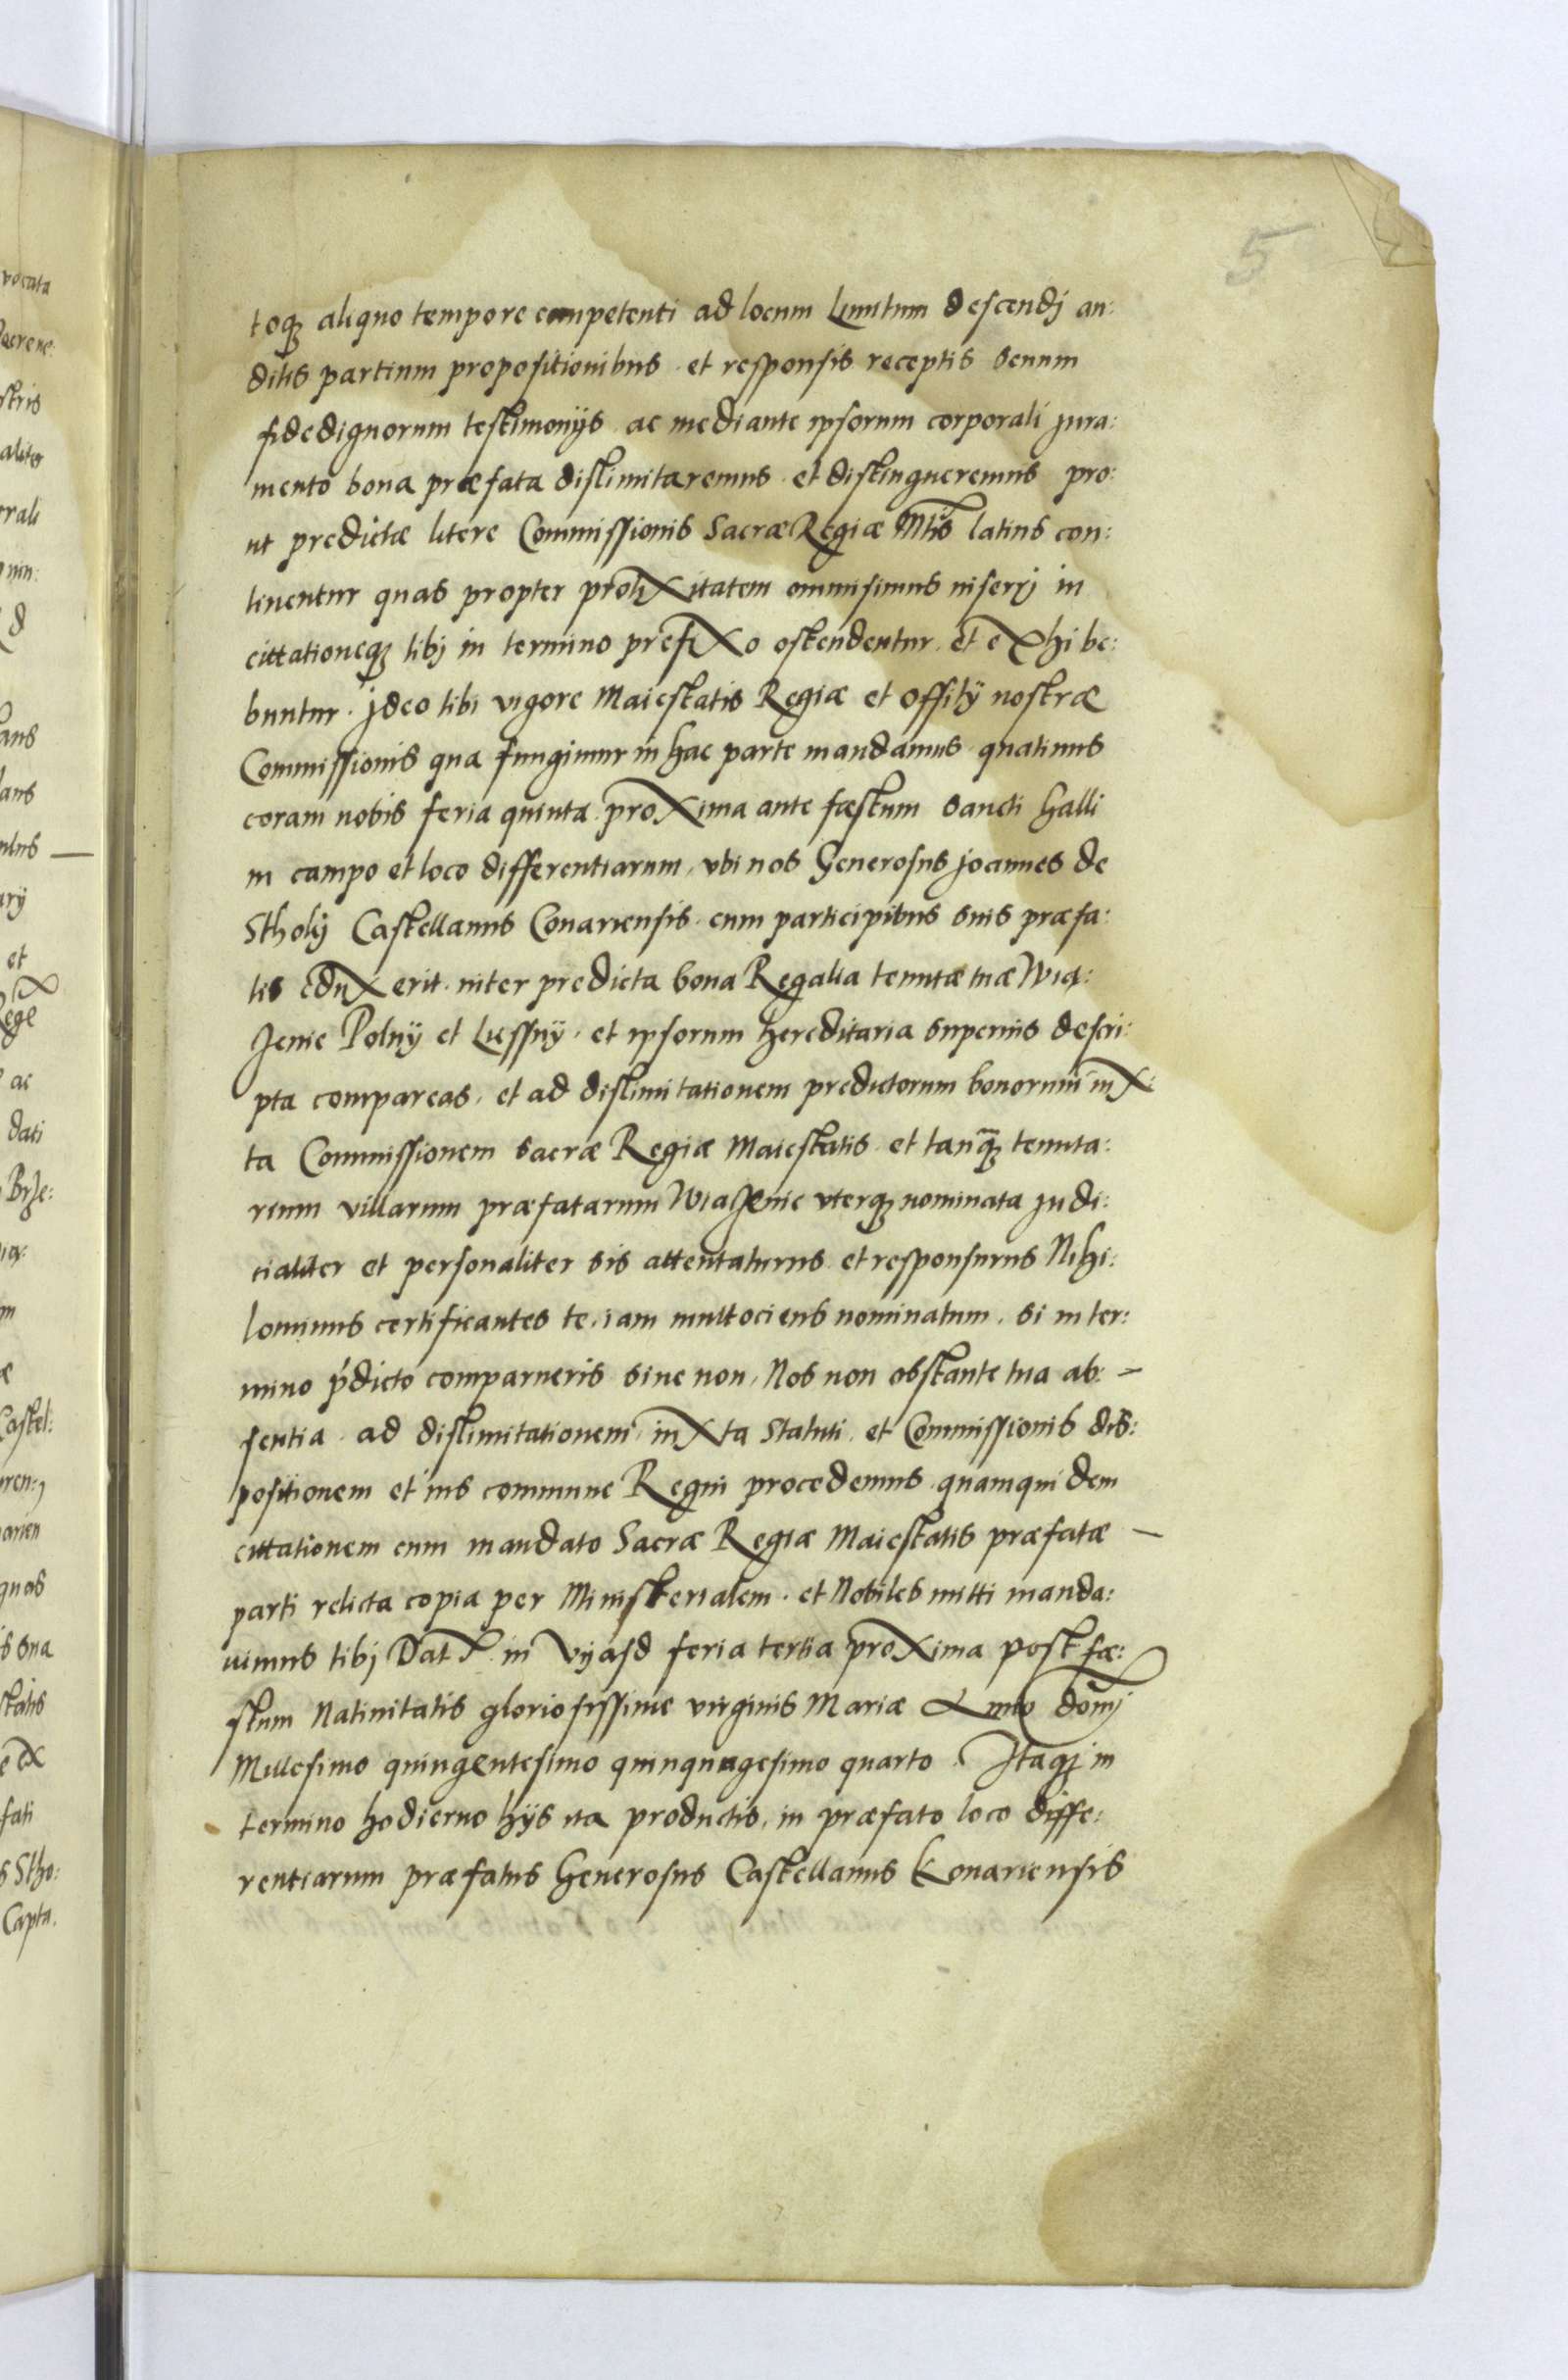 5
toq aliquo tempore competenti ad locum Limitum descendj au:
ditis partium propositionibus et responsis receptis Senum
fidedignorum testimonijs ac mediante ipsorum corporali jura:
mento bona præfata dislimitaremus et distingueremus pro:
ut predictæ litere Commissionis Sacræ Regiæ Mtis latius con:
tinentur quas propter prolixitatem ommisimus inserj in
cittationeq tibj in termino prefixo ostendentur et exhibe:
buntur. jdeo tibi vigore Maiestatis Regiæ et offitÿ nostræ
Commissionis qua fungimur in hac parte mandamus quatinus
coram nobis feria quinta proxima ante fæstum Sancti Halli
in campo et loco differentiarum, vbi nos Generosus joannes de
Stholij Castellanus Conariensis cum participibus suis præfa:
tis eduxerit inter predicta bona Regalia tenutæ tuæ Wią:
Jenie Polnÿ et Liessnÿ. et ipsorum hereditaria superius descri:
pta compareas, et ad dislimitationem predictorum bonorum iux:
ta Commissionem sacræ Regiæ Maiestatis et tanq tenuta:
rium villarum præfatarum WiąJenie vterq nominata judi:
cialiter et personaliter sis attentaturus et responsurus Nihi:
lominus certificantes te iam multociens nominatum. si in ter:
mino pdicto comparueris siue non, Nos non obstante tua ab: –
sentia ad dislimitationem iuxta Statuti et Commissionis dis:
positionem et ius commune Regni procedemus quamquidem
cittationem cum mandato Sacræ Regiæ Maiestatis præfatæ –
parti relicta copia per Ministerialem. et Nobiles mitti manda:
uimus tibj Dat in Vjasd feria tertia proxima post fæ:
stum Natiuitatis gloriosissime virginis Mariæ Anno domj
Millesimo quingentesimo quinquagesimo quarto. Itaq in
termino hodierno hÿs ita productis, in præfato loco diffe:
rentiarum præfatus Generosus Castellanus Konariensis